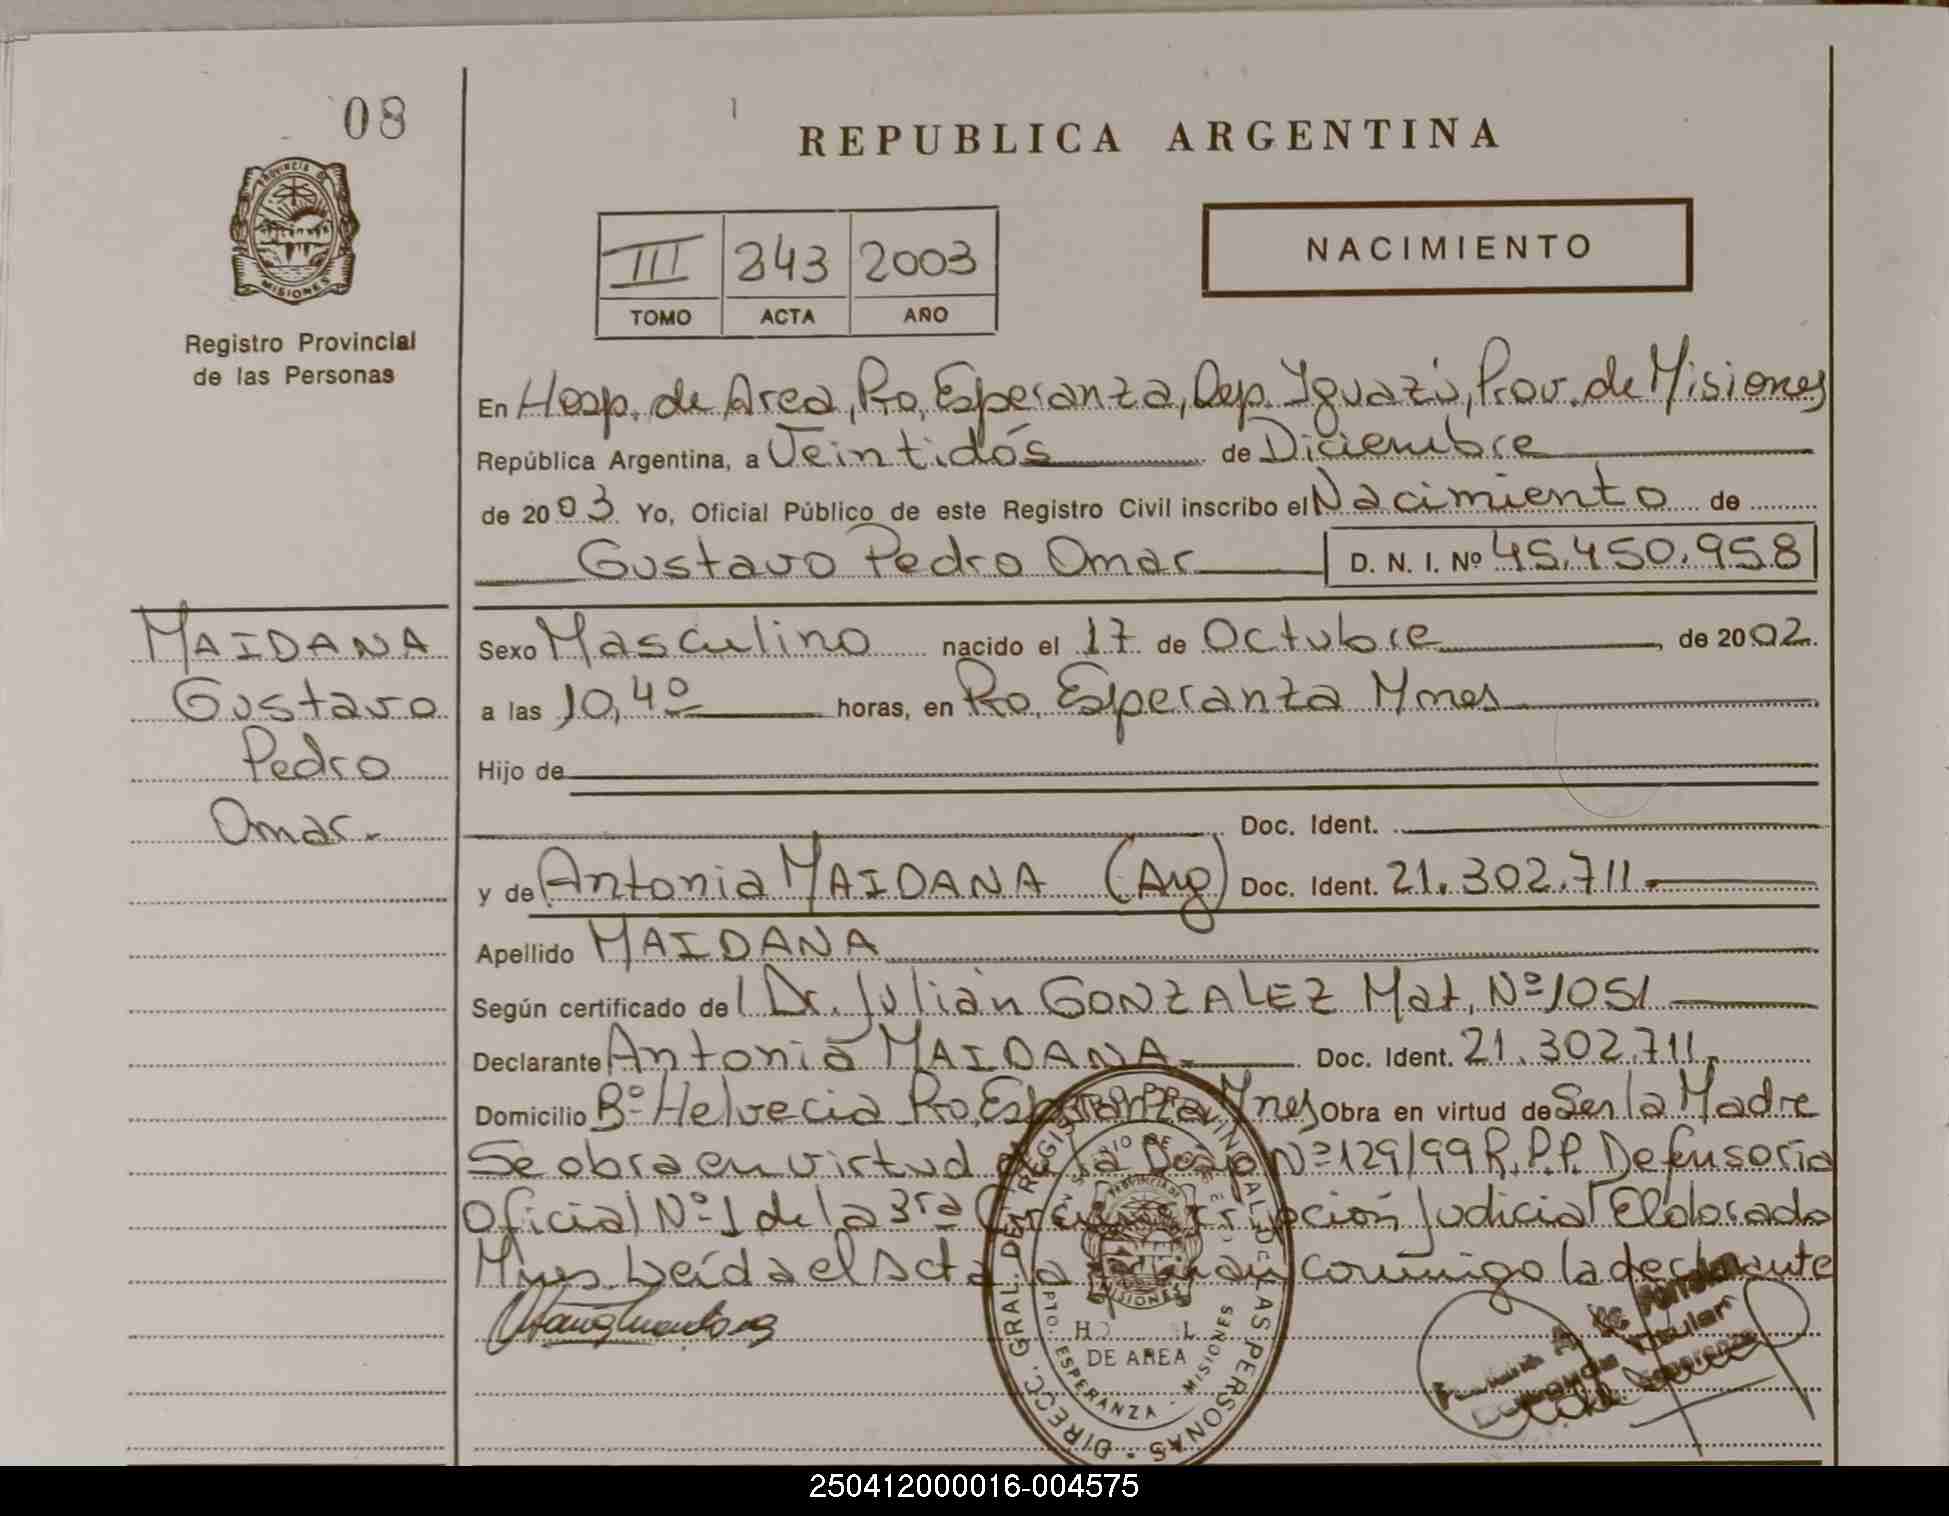 08
REPUBLICA ARGENTINA
PROVINCIA DE
MISIONES
Registro Provincial
de las Personas
III 343 2003
TOMO ACTA AÑO
NACIMIENTO
En Hosp. de Area, Pto, Esperanza, Dep. Iguazú, Prov. de Misiones
República Argentina, a Veintidós de Diciembre
de 2003 Yo, Oficial Público de este Registro Civil inscribo el Nacimiento de
Gustavo Pedro Omar D. N. I. Nº 45.450.958
MAIDANA
Gustavo
Pedro
Omar.
Sexo Masculino nacido el 17 de Octubre, de 2002.
a las 10,40 horas, en Pto, Esperanza Mnes
Hijo de
Doc. Ident.
y de Antonia MAIDANA (Arg) Doc. Ident. 21.302.711.
Apellido MAIDANA
Según certificado del Dr. Julián GONZALEZ Mat, Nº 1051
Declarante Antonia MAIDANA. Doc. Ident. 21.302.711.
Domicilio Bº Helvecia Pto, Esperanza, Mnes Obra en virtud de Ser la Madre
Se obra en virtud de la Nº 129/99 R.P.P. Defensoría
Oficial Nº 1 de la 3ra Circunscripción Judicial Eldorado
Mnes. Leída el Acta la firman conmigo la declarante
DIRECC. GRAL. DEL REGISTRO PROVINCIAL DE LAS PERSONAS
MISIONES
DE AREA
PTO. ESPERANZA - MISIONES
Titular
250412000016-004575